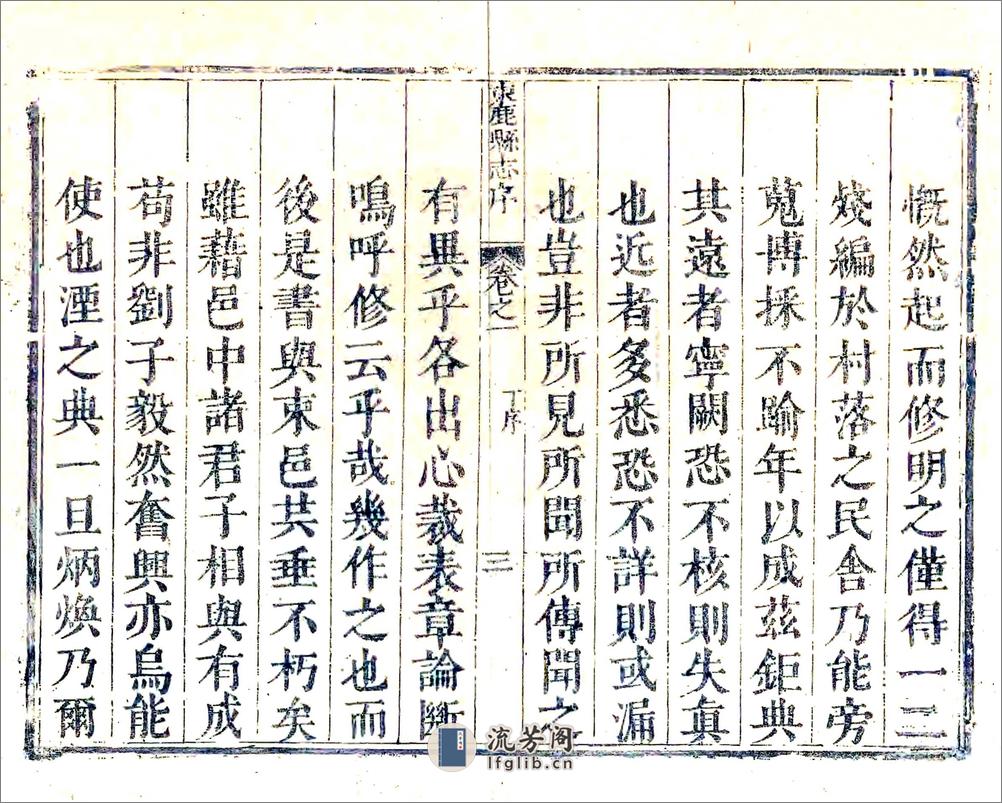 慨然起而修明之僅得一二
燬編於村落之民舍乃能旁
蒐博採不踰年以成茲鉅典
其遠者寧闕恐不核則失眞
也近者多悉恐不詳則或漏
也豈非所見所聞所傳聞之
束鹿縣志序 卷之一 丁序 三
有異乎各出心裁表章論斷
鳴呼修云乎哉幾作之也而
後是書與束邑共垂不朽矣
雖藉邑中諸君子相與有成
苟非劉子毅然奮興亦烏能
使也湮之典一旦炳煥乃爾
流芳阁
lfglib.cn